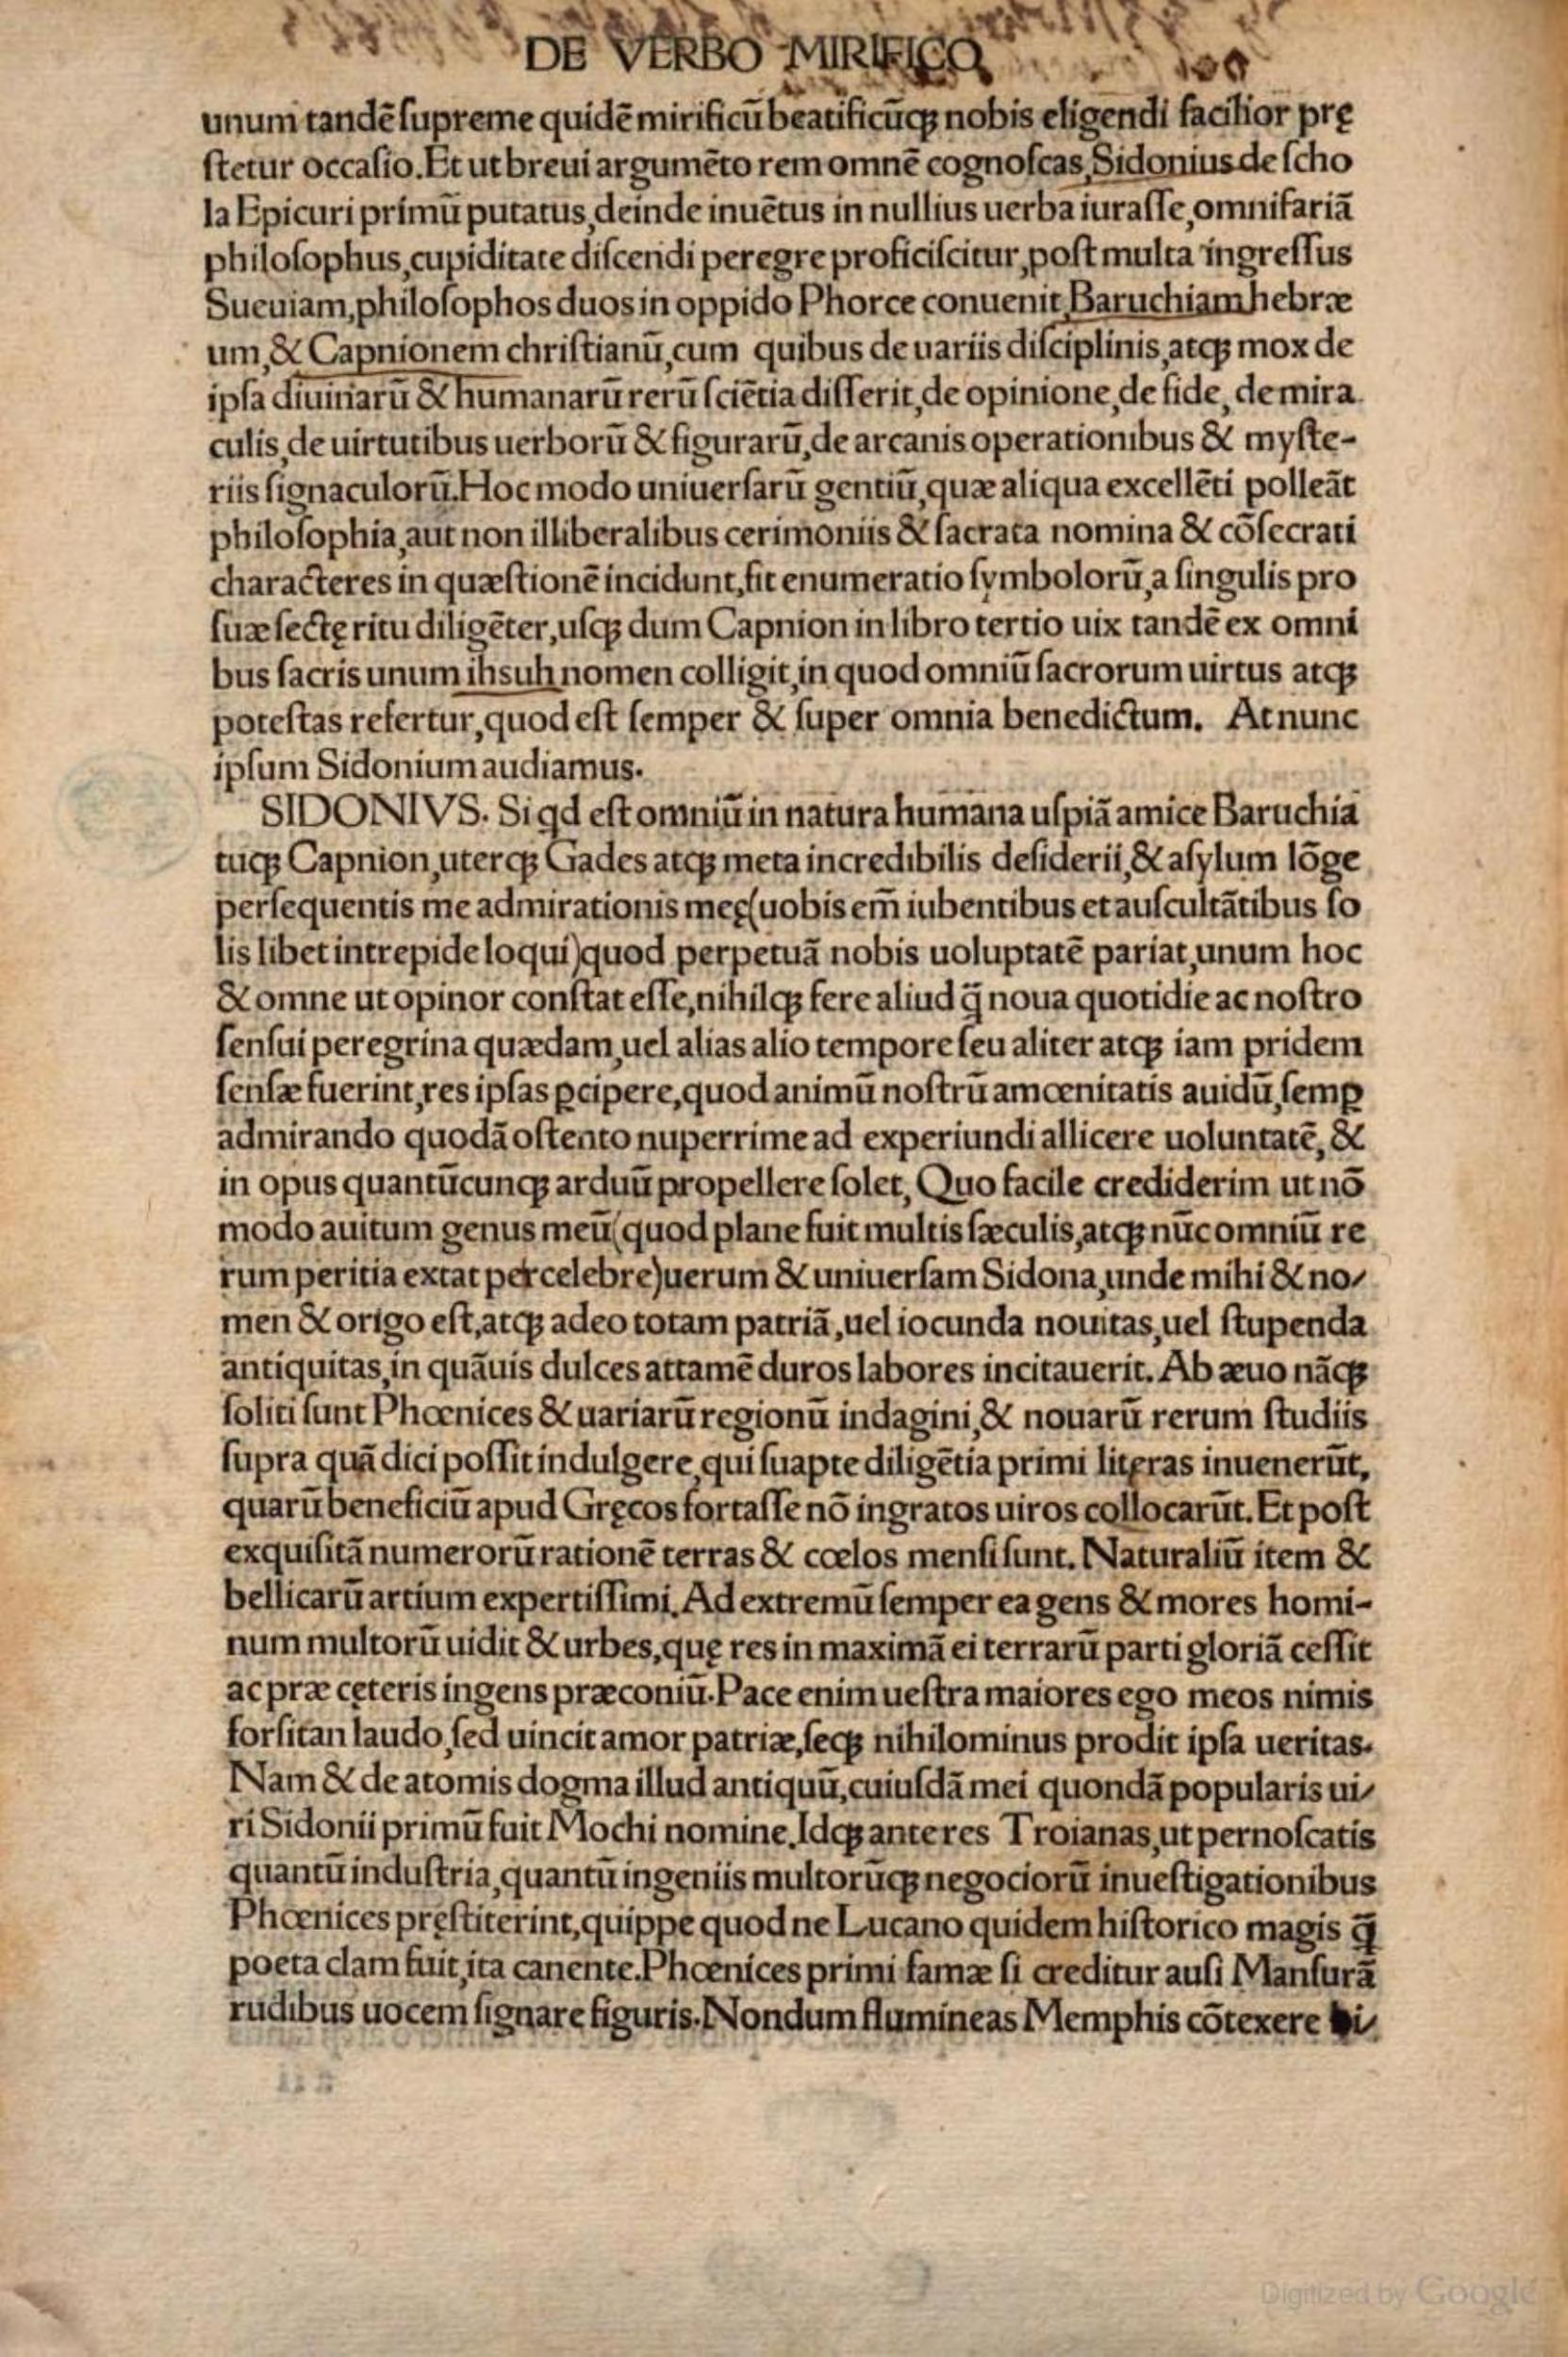 DE VERBO MIRIFICO
unum tandē ſupreme quidē mirificū beatificūqꝫ nobis eligendi facilior prę
ſtetur occaſio. Et ut breui argumēto rem omnē cognoſcas, Sidonius de ſcho
la Epicuri primū putatus, deinde inuētus in nullius uerba iuraſſe, omnifariā
philoſophus, cupiditate diſcendi peregre proficiſcitur, poſt multa ingreſſus
Sueuiam, philoſophos duos in oppido Phorce conuenit, Baruchiam hebræ
um, & Capnionem chriſtianū, cum quibus de uariis diſciplinis, atqꝫ mox de
ipſa diuinarū & humanarū rerū ſciētia diſſerit, de opinione, de fide, de mira
culis, de uirtutibus uerborū & figurarū, de arcanis operationibus & myſte-
riis ſignaculorū. Hoc modo uniuerſarū gentiū, quæ aliqua excellēti polleāt
philoſophia, aut non illiberalibus cerimoniis & ſacrata nomina & cōſecrati
characteres in quæſtionē incidunt, fit enumeratio ſymbolorū, a ſingulis pro
ſuæ ſectę ritu diligēter, uſqꝫ dum Capnion in libro tertio uix tandē ex omni
bus ſacris unum ihsuh nomen colligit, in quod omniū ſacrorum uirtus atqꝫ
poteſtas refertur, quod eſt ſemper & ſuper omnia benedictum. At nunc
ipſum Sidonium audiamus.
SIDONIVS. Si qd eſt omniū in natura humana uſpiā amice Baruchia
tuqꝫ Capnion, uterqꝫ Gades atqꝫ meta incredibilis deſiderii, & aſylum lōge
perſequentis me admirationis meę (uobis em̄ iubentibus et auſcultātibus ſo
lis libet intrepide loqui) quod perpetuā nobis uoluptatē pariat, unum hoc
& omne ut opinor conſtat eſſe, nihilqꝫ fere aliud q̄ noua quotidie ac noſtro
ſenſui peregrina quædam, uel alias alio tempore ſeu aliter atqꝫ iam pridem
ſenſæ fuerint, res ipſas ꝑcipere, quod animū noſtrū amœnitatis auidū, ſemꝑ
admirando quodā oſtento nuperrime ad experiundi allicere uoluntatē, &
in opus quantūcunqꝫ arduū propellere ſolet, Quo facile crediderim ut nō
modo auitum genus meū (quod plane fuit multis ſæculis, atqꝫ nūc omniū re
rum peritia extat percelebre) uerum & uniuerſam Sidona, unde mihi & no/
men & origo eſt, atqꝫ adeo totam patriā, uel iocunda nouitas, uel ſtupenda
antiquitas, in quāuis dulces attamē duros labores incitauerit. Ab æuo nāqꝫ
ſoliti ſunt Phœnices & uariarū regionū indagini, & nouarū rerum ſtudiis
ſupra quā dici poſſit indulgere, qui ſuapte diligētia primi literas inuenerūt,
quarū beneficiū apud Gręcos fortaſſe nō ingratos uiros collocarūt. Et poſt
exquiſitā numerorū rationē terras & cœlos menſi ſunt. Naturaliū item &
bellicarū artium expertiſſimi. Ad extremū ſemper ea gens & mores homi-
num multorū uidit & urbes, quę res in maximā ei terrarū parti gloriā ceſſit
ac præ cęteris ingens præconiū. Pace enim ueſtra maiores ego meos nimis
forſitan laudo, ſed uincit amor patriæ, ſeqꝫ nihilominus prodit ipſa ueritas.
Nam & de atomis dogma illud antiquū, cuiuſdā mei quondā popularis ui/
ri Sidonii primū fuit Mochi nomine. Idqꝫ ante res Troianas, ut pernoſcatis
quantū induſtria, quantū ingeniis multorūqꝫ negociorū inueſtigationibus
Phœnices pręſtiterint, quippe quod ne Lucano quidem hiſtorico magis q̄
poeta clam fuit, ita canente. Phœnices primi famæ ſi creditur auſi Manſurā
rudibus uocem ſignare figuris. Nondum flumineas Memphis cōtexere bi/
Digitized by Google